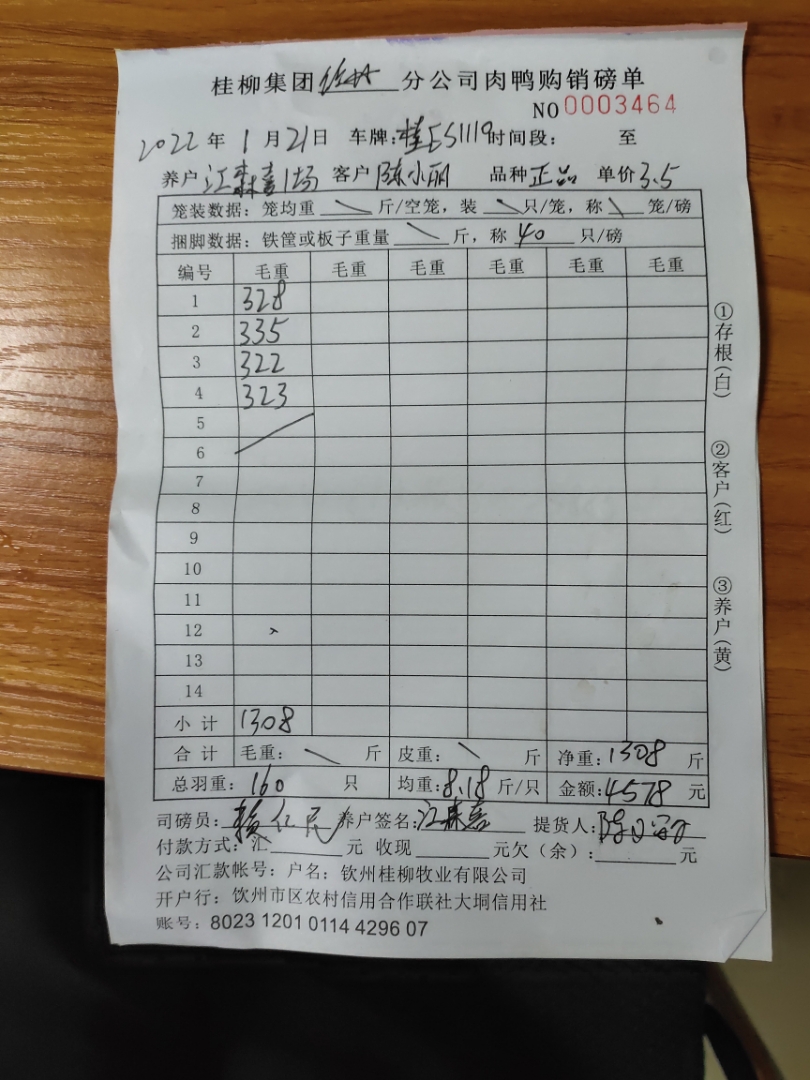 桂柳集团 分公司肉鸭购销磅单
NO 0003464
2022年1月21日 车牌:桂ES1119 时间段: 至
养户 江森喜1场 客户 陈小丽 品种 正品 单价 3.5
笼装数据:笼均重 \ 斤/空笼,装 \ 只/笼,称 \ 笼/磅
捆脚数据:铁筐或板子重量 \ 斤,称 40 只/磅
编号 毛重 毛重 毛重 毛重 毛重 毛重
1 328
2 335
3 322
4 323
5
6
7
8
9
10
11
12
13
14
小计 1308
合计 毛重: \ 斤 皮重: \ 斤 净重:1308 斤
总羽重:160 只 均重:8.18 斤/只 金额:4578 元
司磅员: 养户签名:江森喜 提货人:
付款方式:汇 元 收现 元欠(余): 元
公司汇款帐号:户名:钦州桂柳牧业有限公司
开户行:钦州市区农村信用合作联社大垌信用社
账号:8023 1201 0114 4296 07
①存根(白)
②客户(红)
③养户(黄)